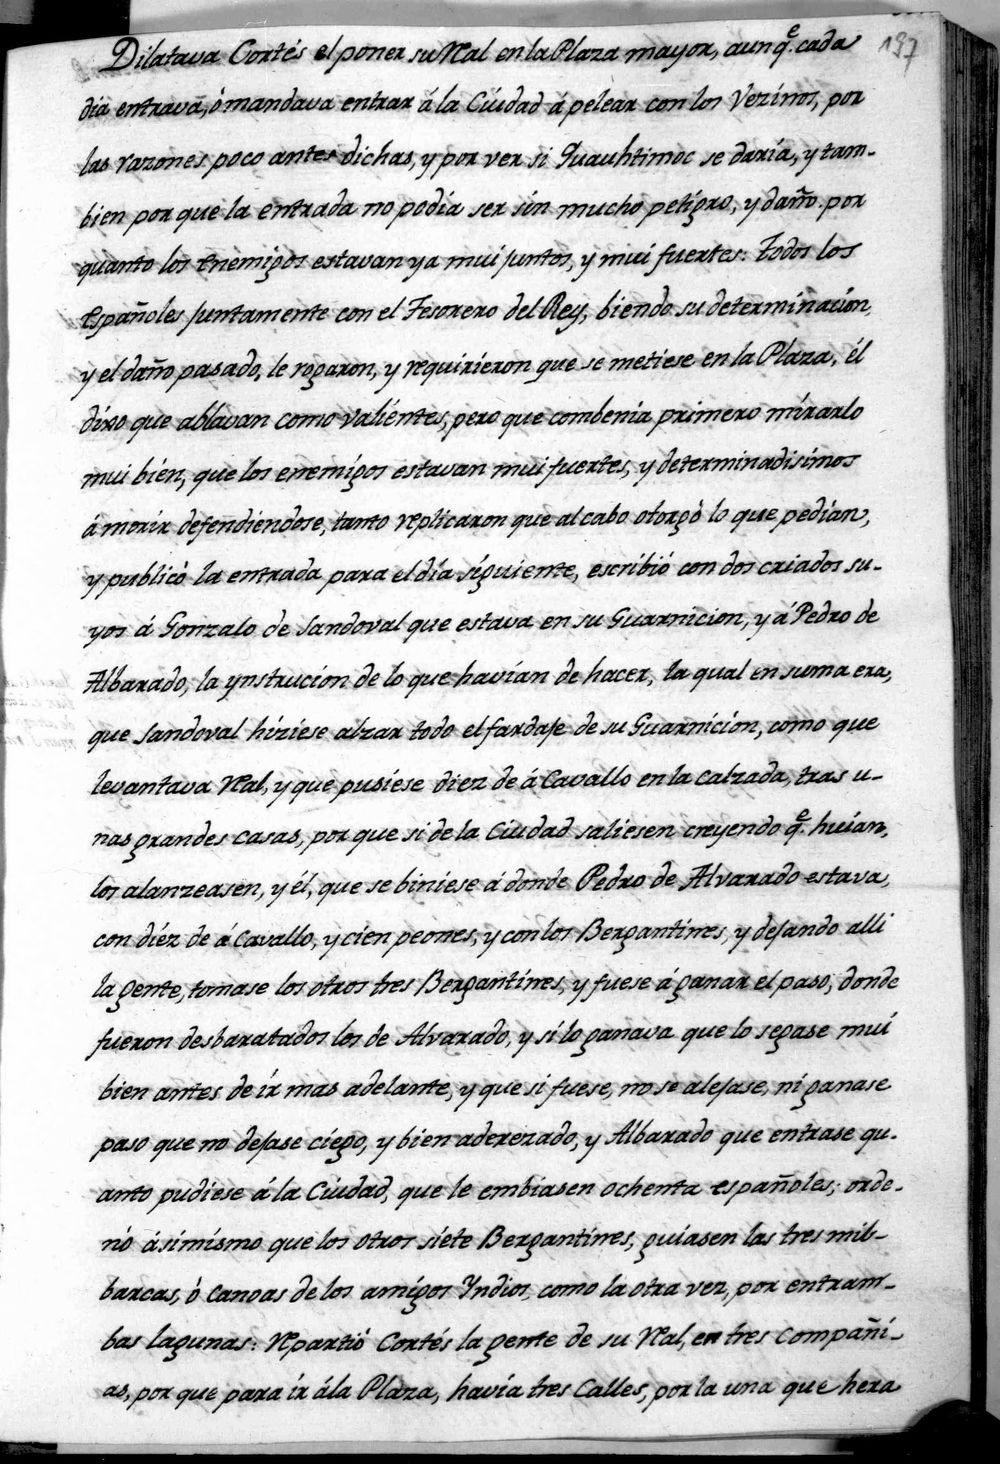 197
Dilatava Cortés el poner su Real en la Plaza mayor, aunqe. cada
dia entrava, ó mandava entrar á la Ciudad á pelear con los Vezinos, por
las razones poco antes dichas, y por ver si Quauhtimoc se daría, y tam-
bien por que la entrada no podia ser sin mucho peligro, y daño. por
quanto los enemigos estavan ya mui juntos, y mui fuertes: Todos los
Españoles juntamente con el Tesorero del Rey, biendo su determinacion,
y el daño pasado, le rogaron, y requirieron que se metiese en la Plaza, él
dixo que ablavan como valientes, pero que combenia primero mirarlo
mui bien, que los enemigos estavan mui fuertes, y determinadisimos
á morir defendiendose, tanto replicaron que al cabo otorgó lo que pedian,
y publicó la entrada para el dia siguiente, escribió con dos criados su-
yos á Gonzalo de Sandoval que estava en su Guarnicion, y á Pedro de
Albarado, la ynstrucion de lo que havían de hacer, la qual en suma era,
que Sandoval hiziese alzar todo el fardaje de su Guarnición, como que
levantava Real, y que pusiese diez de á Cavallo en la calzada, tras u-
nas grandes casas, por que si de la Ciudad saliesen creyendo qe. huian,
los alanzeasen, y él, que se biniese á donde Pedro de Alvarado estava,
con diez de á Cavallo, y cien peones, y con los Bergantines, y dejando alli
la gente, tomase los otros tres Bergantines, y fuese á ganar el paso, donde
fueron desbaratados los de Alvarado, y si lo ganava que lo segase mui
bien antes de ir mas adelante, y que si fuese, no se alejase, ni ganase
paso que no dejase ciego, y bien aderezado, y Albarado que entrase qu-
anto pudiese á la Ciudad, que le embiasen ochenta españoles; orde-
nó ásimismo que los otros siete Bergantines, guiasen las tres mil-
barcas, ó canoas de los amigos Yndios, como la otra vez, por entram-
bas lagunas: Repartió Cortés la gente de su Real, en tres compañi-
as, por que para ir á la Plaza, havía tres Calles, por la una que hera